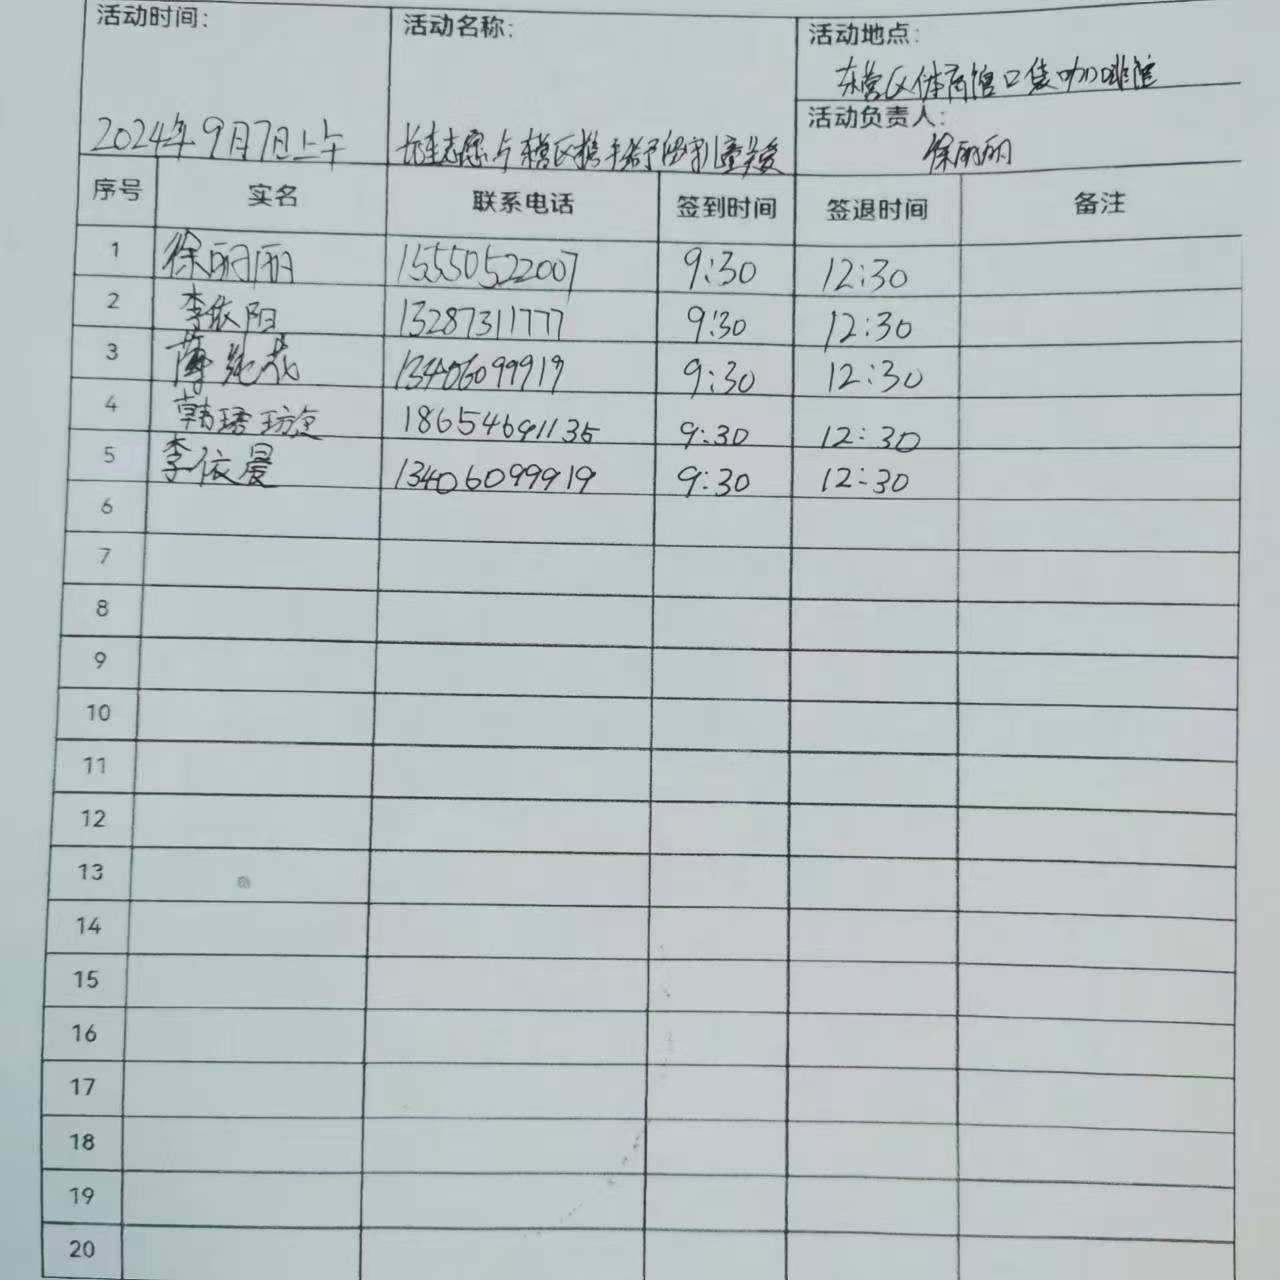 活动时间: 活动名称: 活动地点:
东营区体育馆口袋咖啡馆
活动负责人:
2024年9月7日上午 志愿与东营区携手给予留守儿童关爱 徐丽丽
序号 实名 联系电话 签到时间 签退时间 备注
1 徐丽丽 15550522007 9:30 12:30
2 李依阳 13287311777 9:30 12:30
3 薄纯成 13406099919 9:30 12:30
4 韩 18654691135 9:30 12:30
5 李依晨 13406099919 9:30 12:30
6
7
8
9
10
11
12
13
14
15
16
17
18
19
20